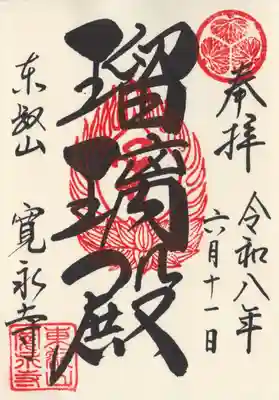 奉拝
令和八年
六月十一日
瑠璃殿
東叡山
寛永寺
東叡山
寛永寺